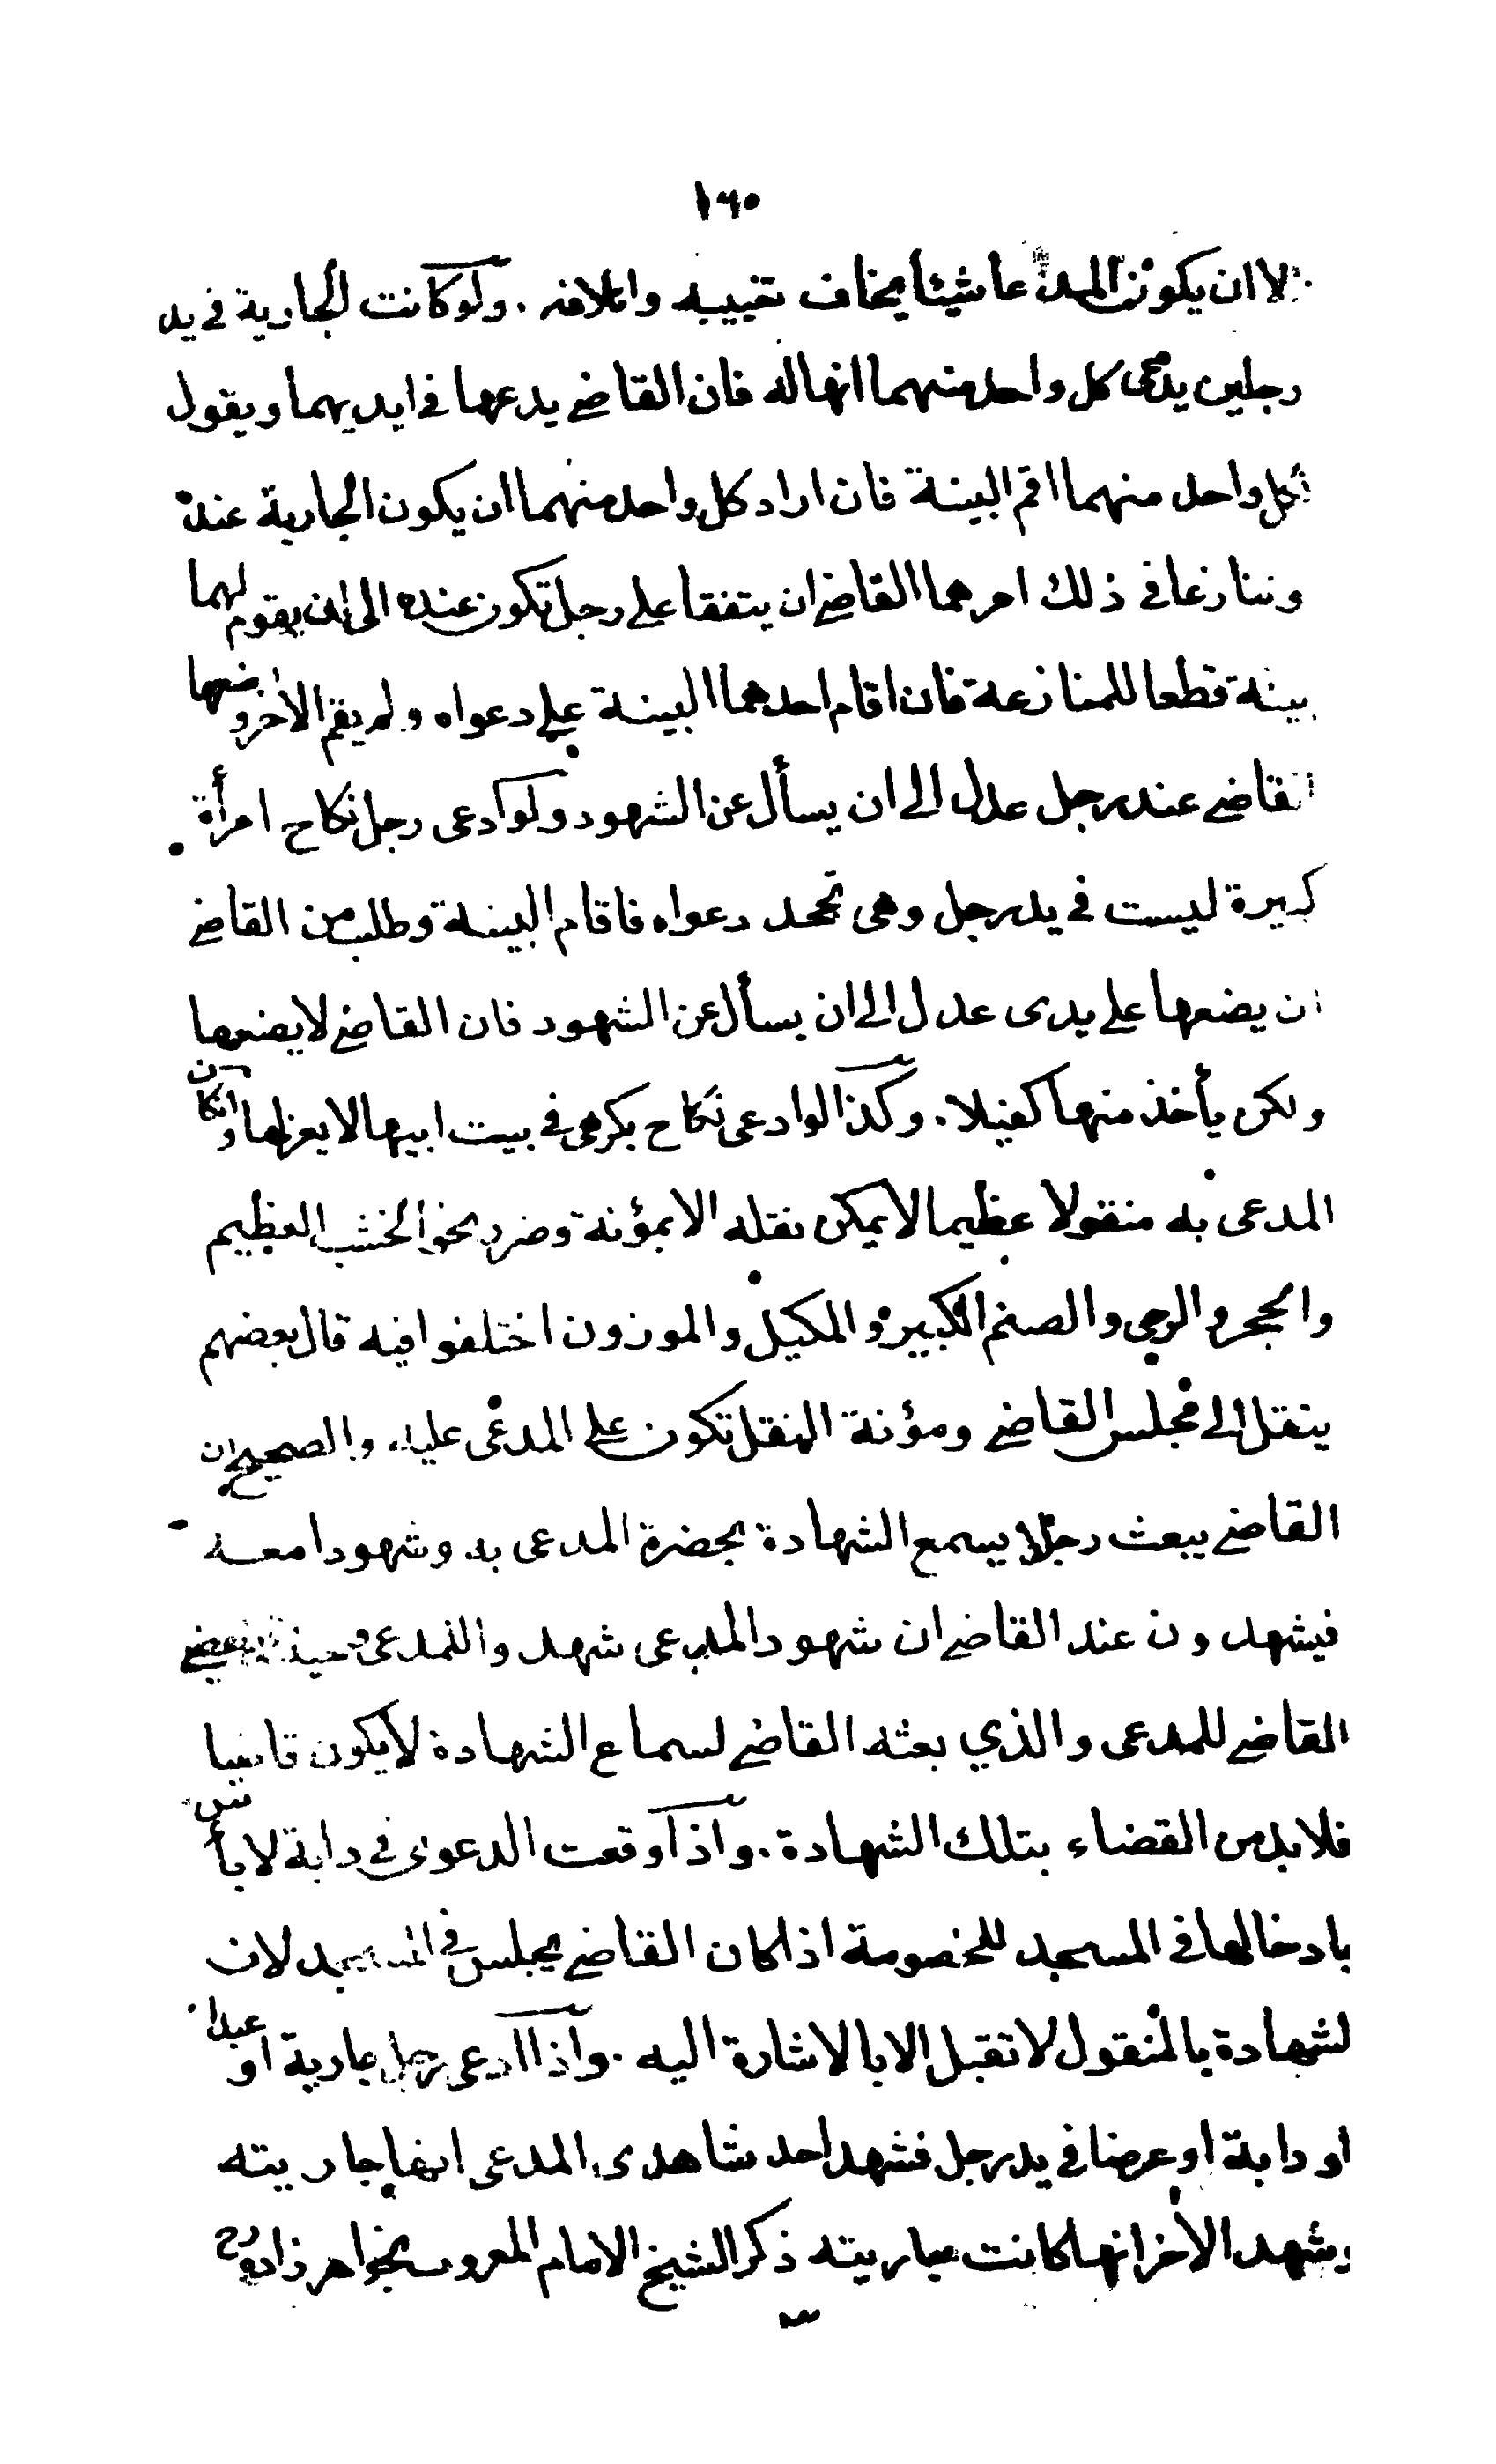 ١٦٠
الا ان يكون المدعا شيئا يخاف تغييبه واتلافه . ولو كانت الجارية في يد
رجلين يدعى كل واحد منهما انها له فان القاضي يدعها في ايديهما ويقول
لكل واحد منهما اقم البينة فان اراد كل واحد منهما ان يكون الجارية عنده
وتنازعا في ذلك امرهما القاضي ان يتفقا على رجل تكون عنده الى ان يقوم لهما
بينة قطعا للمنازعة فان اقام احدهما البينة على دعواه ولم يقم الاخر وضعها
القاضي عند رجل عدل الى ان يسأل عن الشهود ولو ادعى رجل نكاح امرأة
كبيرة ليست في يد رجل وهى تجحد دعواه فاقام البينة وطلب من القاضي
ان يضعها على يدى عدل الى ان يسأل عن الشهود فان القاضي لا يضعها
ولكن يأخذ منها كفيلا . وكذا لو ادعى نكاح بكر هى في بيت ابيها لا يعزلها وان كان
المدعى به منقولا عظيما لا يمكن نقله الا بمؤنة وضرر نحو الخشب العظيم
والحجر والرحى والصنم الكبير والمكيل والموزون اختلفوا فيه قال بعضهم
ينقل الى مجلس القاضي ومؤنة النقل تكون على المدعى عليه والصحيح ان
القاضي يبعث رجلا يسمع الشهادة بحضرة المدعى به وشهودا معه
فيشهدون عند القاضي ان شهود المدعى شهدوا للمدعى وحينئذ يقضي
القاضي للمدعى والذي بعثه القاضي لسماع الشهادة لا يكون قاضيا
فلا بد من القضاء بتلك الشهادة . واذا وقعت الدعوى في دابة لا بأس
بادخالها في المسجد للخصومة اذا كان القاضي يجلس في المسجد لان
لشهادة بالمنقول لا تقبل الا بالاشارة اليه . واذا ادعى رجل جارية او عبدا
او دابة او عرضا في يد رجل فشهد احد شاهدى المدعى انها جاريته
وشهد الاخر انها كانت جاريته ذكر الشيخ الامام المعروف بخواهر زاده رح